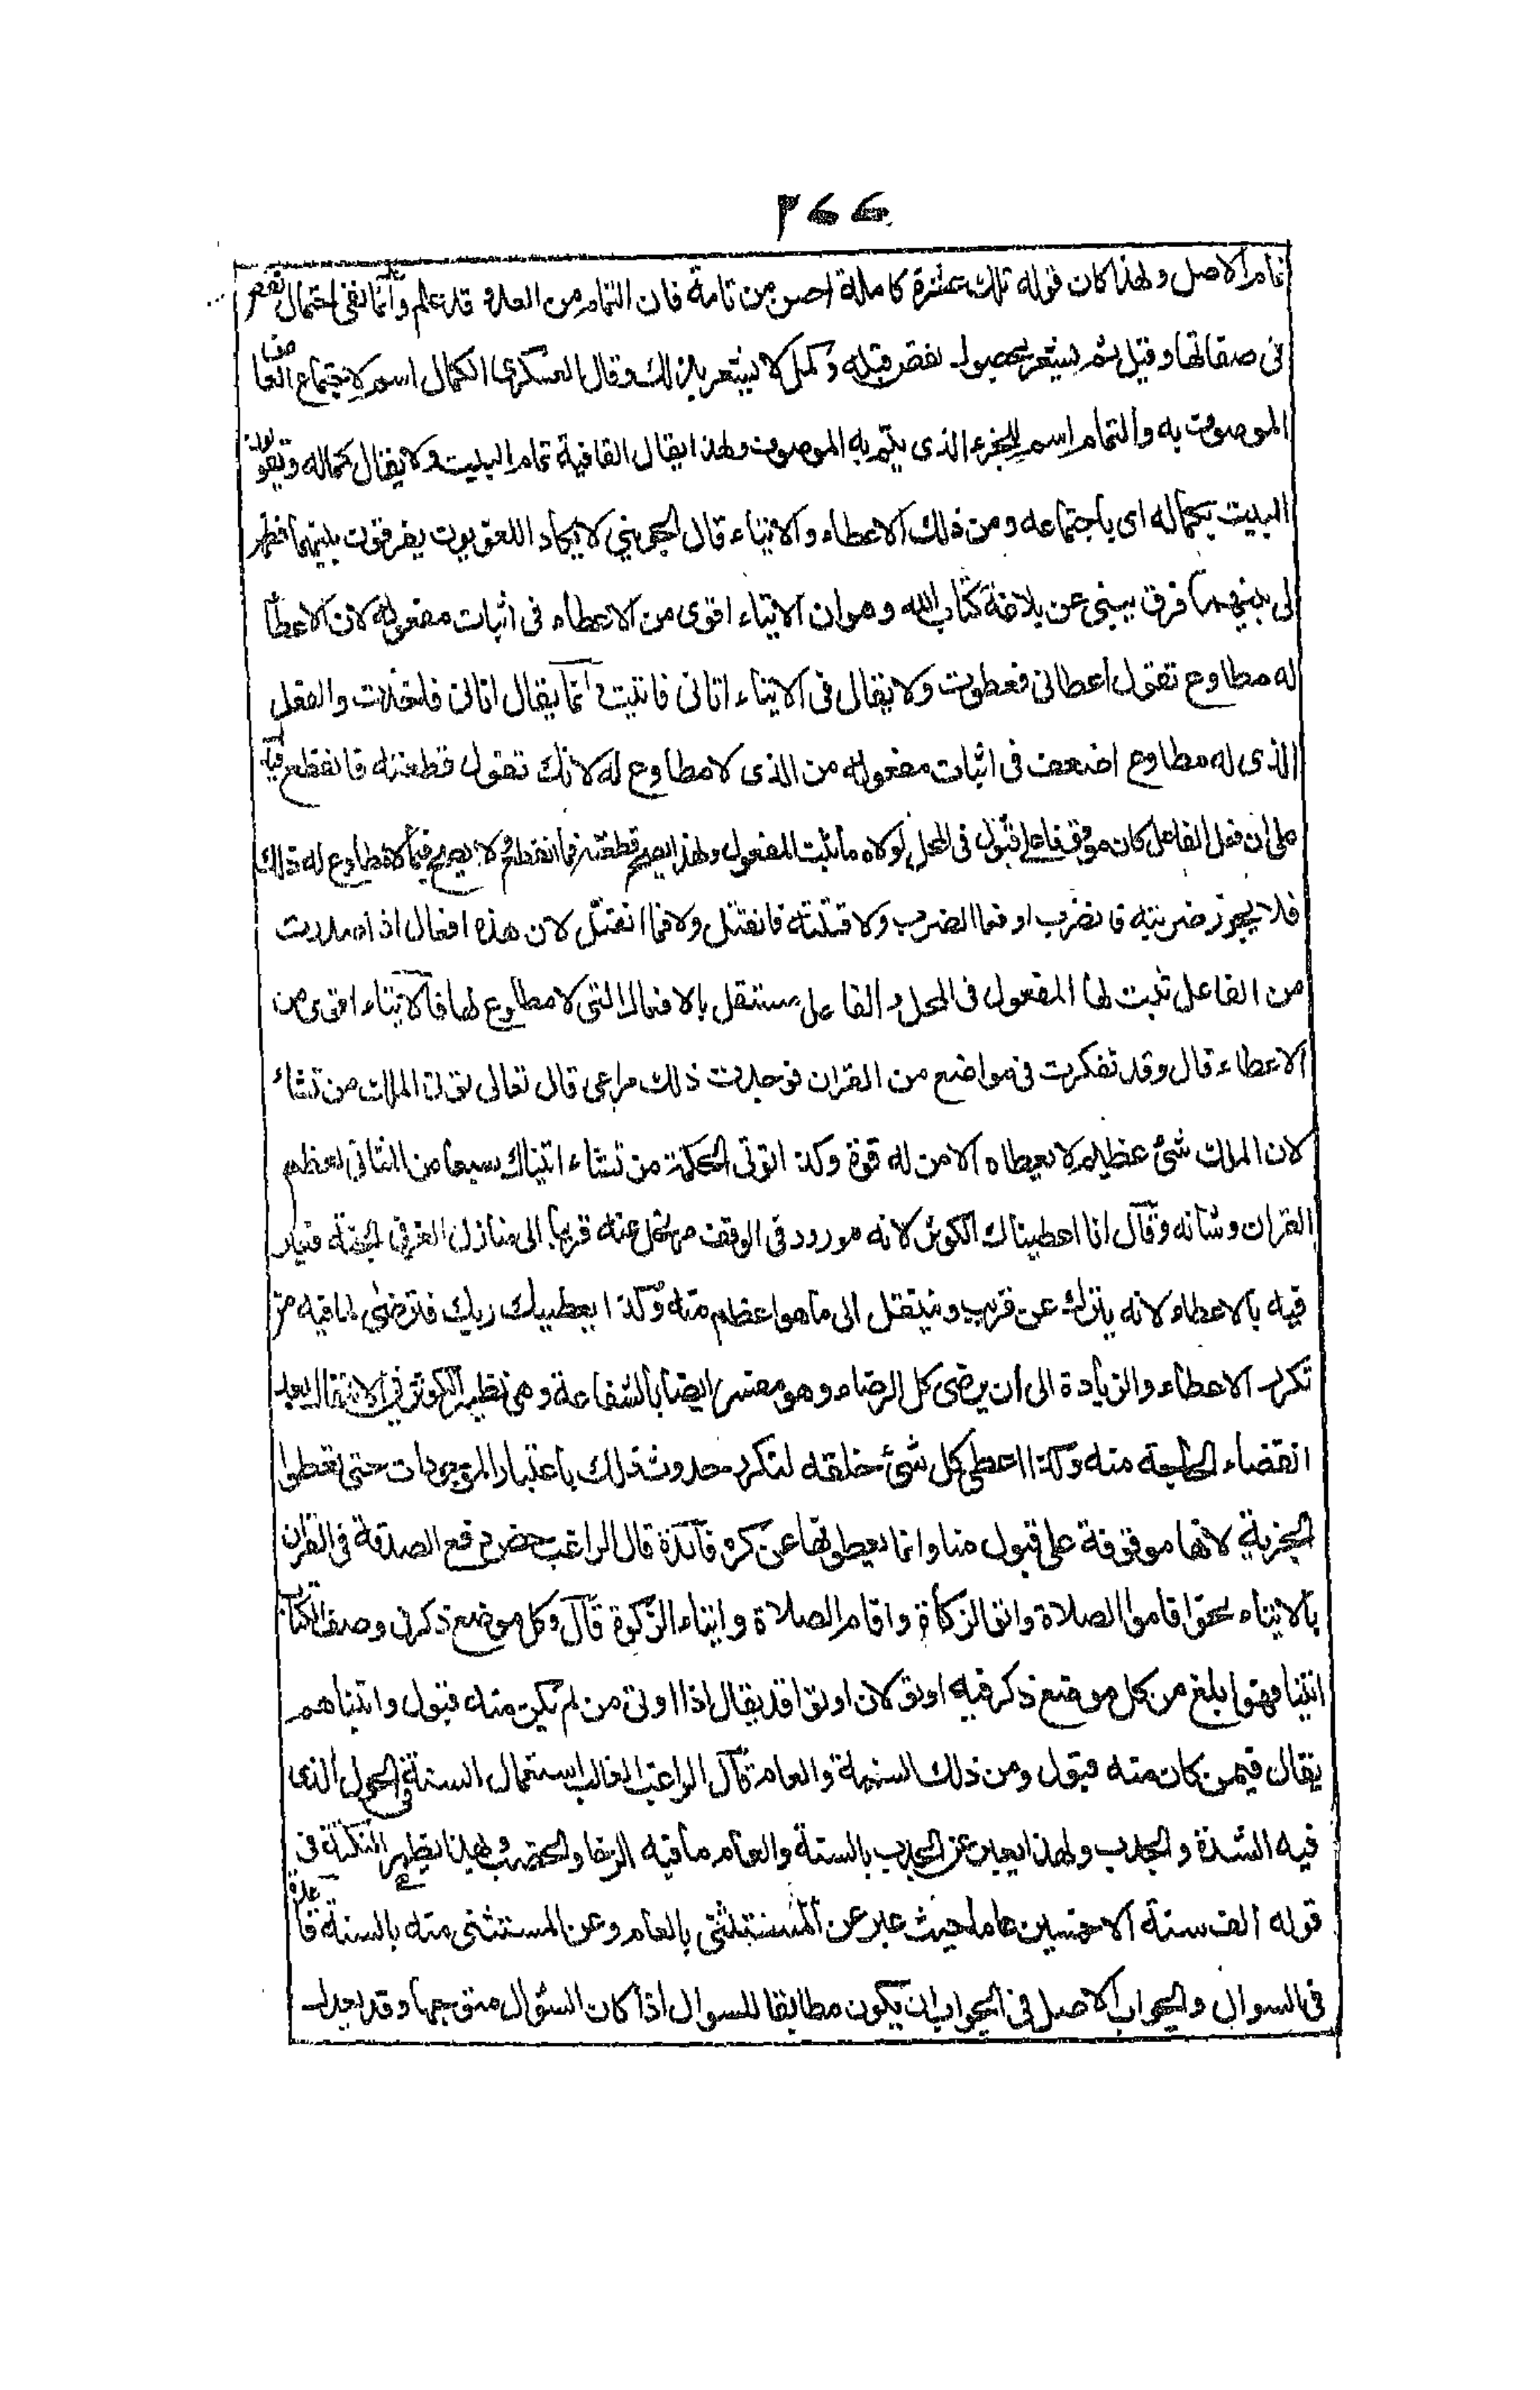 ٣٦٦
تمام الاصل ولهذا كان قوله تلك عشرة كاملة احسن من تامة فان التمام من العدد قد علم وانما نفى احتمال نقص
فى صفاتها وقيل تم يشعر بحصول نقص قبله وكمل لا يشعر بذلك وقال العسكرى الكمال اسم لاجتماع ابعاض
الموصوف به والتمام اسم للجزء الذى يتم به الموصوف ولهذا يقال القافية تمام البيت ولا يقال كماله ويقولون
البيت بكماله اى باجتماعه ومن ذلك الاعطاء والايتاء قال الجوينى لا يكاد اللغويون يفرقون بينهما فظهر
لى بينهما فرق ينبئ عن بلاغة كتاب الله وهو ان الايتاء اقوى من الاعطاء فى اثبات مفعوله لان الاعطا
له مطاوع تقول اعطانى فعطوت ولا يقال فى الايتاء اتانى فاتيت وانما يقال اتانى فاخذت والفعل
الذى له مطاوع اضعف فى اثبات مفعوله من الذى لا مطاوع له لانك تقول قطعته فانقطع فيدل
على ان فعل الفاعل كان موقوفا على قبول فى المحل لولاه ما ثبت المفعول ولهذا يصح قطعته فما انقطع ولا يصح فيما لا مطاوع له ذلك
فلا يجوز ضربته فانضرب او فما انضرب ولا قتلته فانقتل ولا فما انقتل لان هذه افعال اذا صدرت
من الفاعل ثبت لها المفعول فى المحل والفاعل مستقل بالافعال التى لا مطاوع لها فالايتاء اقوى من
الاعطاء قال وقد تفكرت فى مواضع من القران فوجدت ذلك مراعى قال تعالى تؤتى الملك من تشاء
لان الملك شئ عظيم لا يعطاه الا من له قوة وكذا تؤتى الحكمة من تشاء اتيناك سبعا من المثانى لعظم
القران وشانه وقال انا اعطيناك الكوثر لانه مورود فى الموقف مرتحل عنه قريبا الى منازل العز فى الجنة فعبر
فيه بالاعطاء لانه يترك عن قرب وينتقل الى ما هو اعظم منه وكذا يعطيك ربك فترضى لما فيه من
تكرر الاعطاء والزيادة الى ان يرضى كل الرضاء وهو مفسر ايضا بالشفاعة وهى نظير الكوثر فى الانتقال بعد
انقضاء الحاجة منه وكذا اعطى كل شئ خلقه لتكرر حدوث ذلك باعتبار الموجودات حتى يعطوا
الجزية لانها موقوفة على قبول منا وانما يعطونها عن كره فائدة قال الراغب خص دفع الصدقة فى القران
بالايتاء نحو اقاموا الصلاة واتوا الزكاة واقام الصلاة وايتاء الزكوة قال وكل موضع ذكر فى وصف الكتاب
اتينا فهو ابلغ من كل موضع ذكر فيه اوتوا لان اوتوا قد يقال اذا اوتى من لم يكن منه قبول واتيناهم
يقال فيمن كان منه قبول ومن ذلك السنة والعام قال الراغب الغالب استعمال السنة فى الحول الذى
فيه الشدة والجدب ولهذا يعبر عن الجدب بالسنة والعام ما فيه الرخا والخصب وبهذا يظهر النكتة فى
قوله الف سنة الا خمسين عاما حيث عبر عن المستثنى بالعام وعن المستثنى منه بالسنة قاعدة
فى السوال والجواب الاصل فى الجواب ان يكون مطابقا للسوال اذا كان السؤال متوجها وقد يعدل